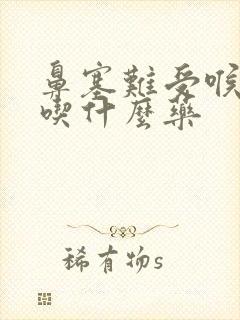 鼻塞難受喉
喫什麼藥
稀有物s